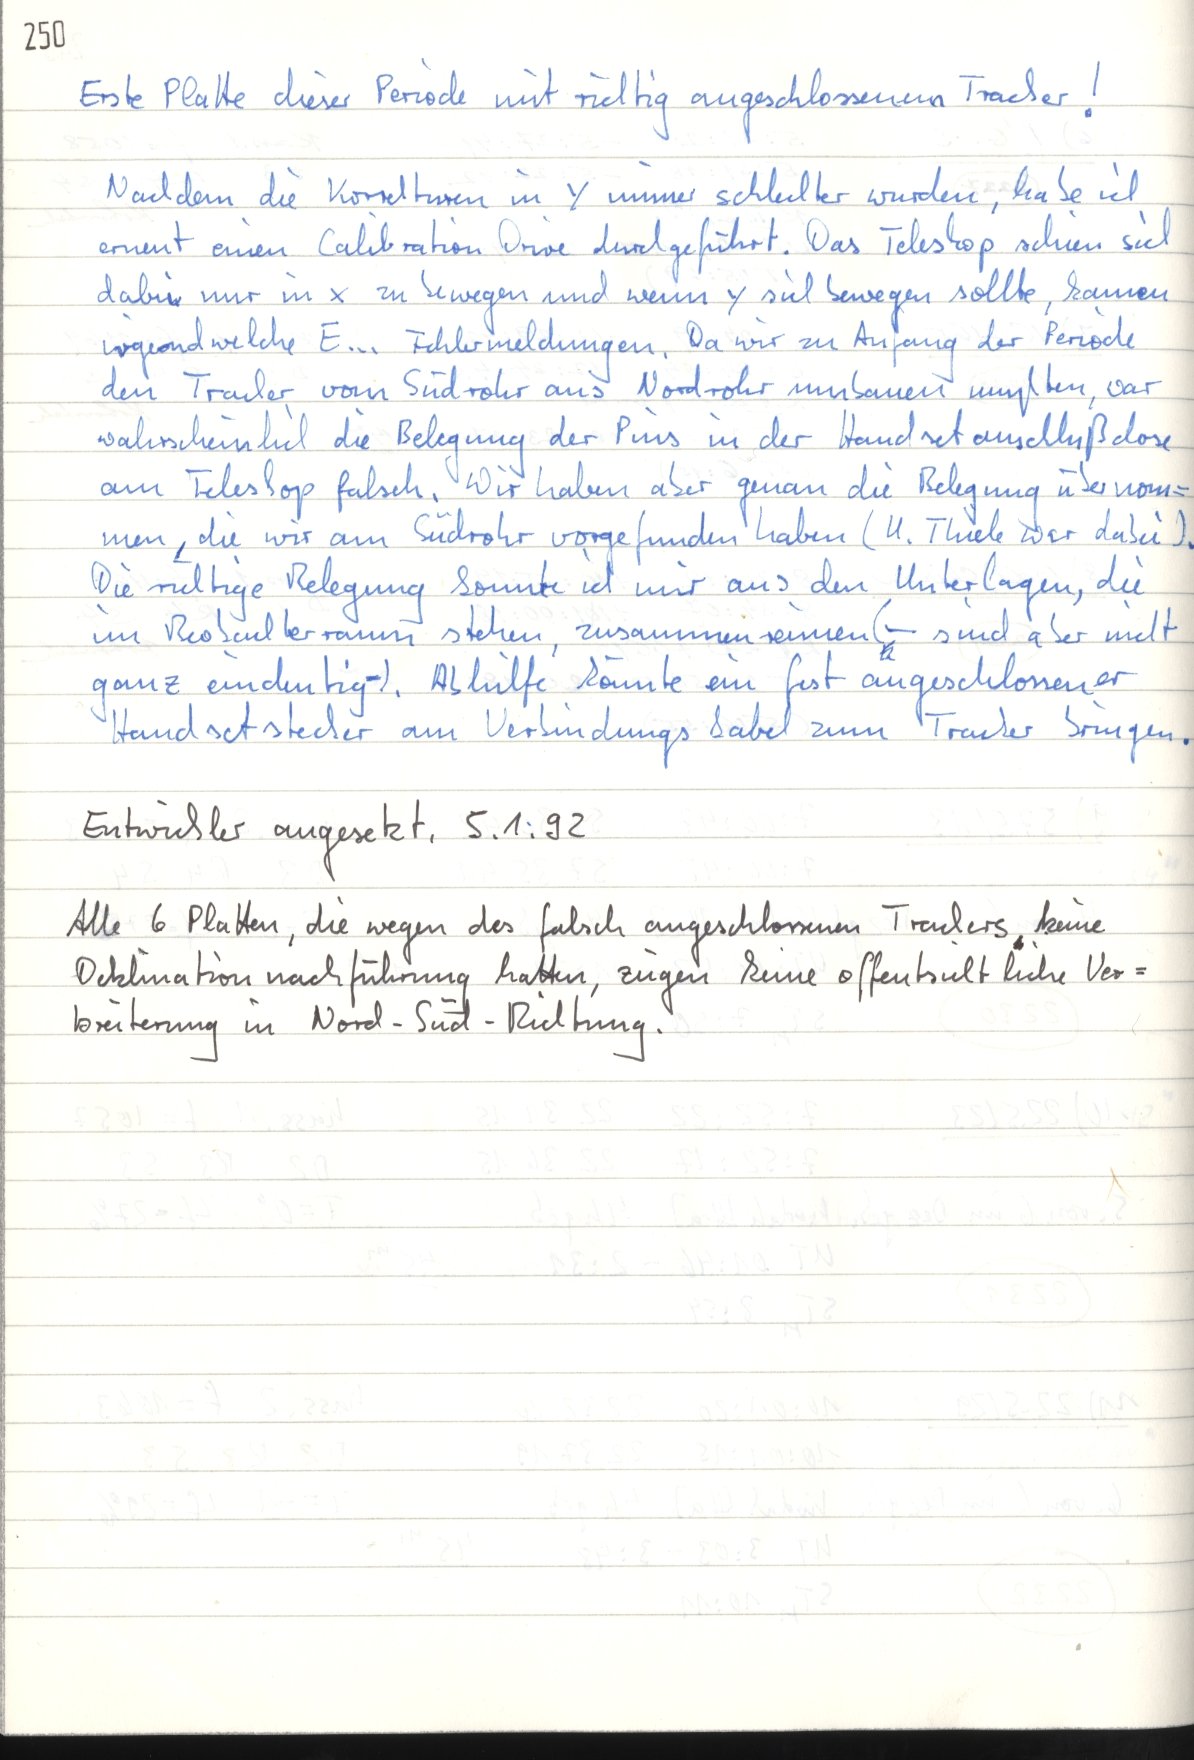 250
Erste Platte dieser Periode mit richtig angeschlossenem Tracker!
Nachdem die Korrekturen in Y immer schlechter wurden, habe ich
erneut einen Calibration Drive durchgeführt. Das Teleskop schien sich
dabei nur in x zu bewegen und wenn y sich bewegen sollte, kamen
irgendwelche E... Fehlermeldungen. Da wir zu Anfang der Periode
den Tracker vom Südrohr ans Nordrohr umbauen mußten, war
wahrscheinlich die Belegung der Pins in der Handsetanschlußdose
am Teleskop falsch. Wir haben aber genau die Belegung übernom=
men, die wir am Südrohr vorgefunden haben (U. Thiele war dabei).
Die richtige Belegung konnte ich mir aus den Unterlagen, die
im Beobachterraum stehen, zusammenreimen (– sind aber nicht
ganz eindeutig–). Abhilfe könnte ein fest angeschlossener
Handsetstecker am Verbindungskabel zum Tracker bringen.
Entwickler angesetzt. 5.1.92
Alle 6 Platten, die wegen des falsch angeschlossenen Trackers, keine
Deklinationnachführung hatten, zeigen keine offensichtliche Ver=
breiterung in Nord-Süd-Richtung.